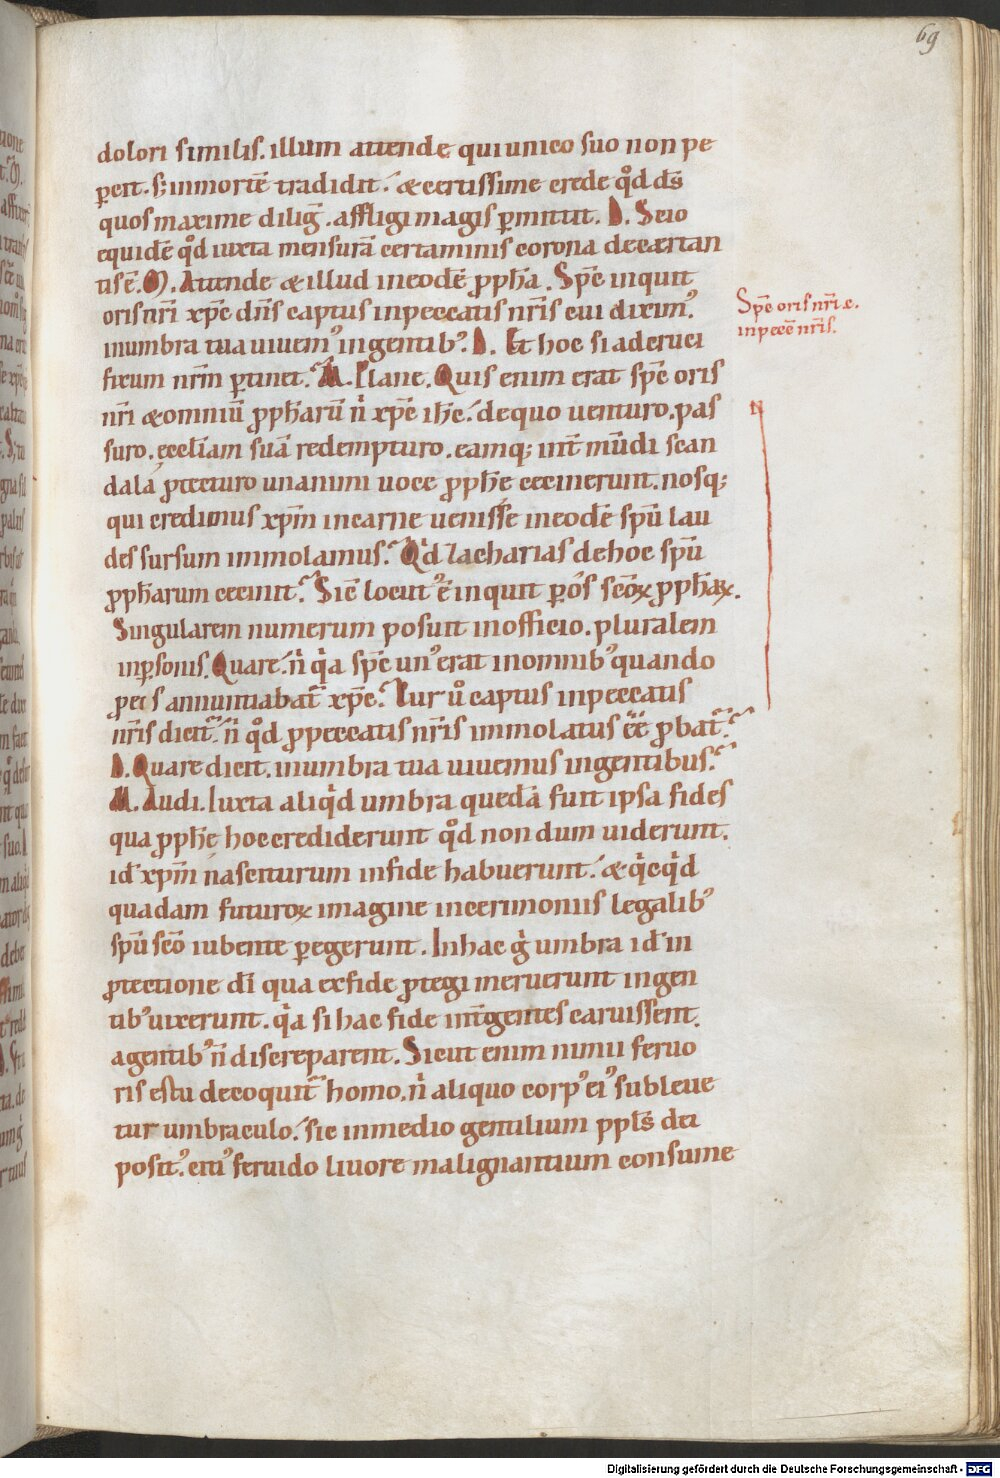 69
dolori similis. illum attende qui unico suo non pe
ꝑcit. sꝫ in mortē tradidit. & certissime crede qͦd d̄s
quos maxime dilig̅. affligi magis ꝑmittit. D. Scio
equidē qͦd iuxta mensurā certaminis corona decertan
tis ē. M. Attende & illud in eodē ꝓph̄a. Sp̅c inquit
oris nr̄i xp̅c dn̄s captus in peccatis nr̄is cui diximꝰ.
in umbra tua uiuemꝰ in gentibꝰ. D. Et hoc si ad cruci
fixum nr̄m ꝑtinet. M. Plane. Quis enim erat sp̅c oris
nr̄i & omniū ꝓph̄arū nͥ xp̅c ih̅c. de quo uenturo. pas
suro. ęccl̄iam suā redempturo. eamqꝫ int̄ mūdi scan
dala ꝓtecturo unanimi uoce ꝓph̄e cecinerunt. nosqꝫ
qui credimus xp̅m in carne uenisse in eodē sp̅u lau
des sursum immolamus. Qͥd Zacharias de hoc sp̅u
ꝓph̄arum cecinit. Sic̄ locutꝰ ē inquit ꝑ os sc̄oꝝ ꝓph̄aꝝ.
Singularem numerum posuit in officio. pluralem
in ꝑsonis. Quare. nͥ qͥa sp̅c unꝰ erat in omnibꝰ quando
ꝑ eos annuntiabat᷑ xp̅c. Cur uͦ captus in peccatis
nr̄is dicit᷑. nͥ qͦd ꝓ peccatis nr̄is immolatus ēē ꝓbat᷑.
D. Quare dicit. in umbra tua uiuemus in gentibus.
M. Audi. Iuxta aliqͥd umbra quedā fuit ipsa fides
qua ꝓph̄e hoc crediderunt qͦd non dum uiderunt.
id xp̅m nasciturum in fide habuerunt. & qͥcqͥd
quadam futuroꝝ imagine in cerimoniis legalibꝰ
sp̅u sc̄o iubente ꝑegerunt. In hac gͦ umbra id in
ꝓtectione dī qua ex fide ꝓtegi meruerunt in gen
tibꝰ uixerunt. qͥa si hac fide int̄ gentes caruissent.
a gentibꝰ n̄ discreparent. Sicut enim nimii feruo
ris estu decoquit᷑ homo. nͥ aliquo corpꝰ eiꝰ subleue
tur umbraculo. sic in medio gentilium ppl̄s dei
positꝰ. eorꝰ feruido liuore malignantium consume
Sp̅c oris nr̄i xc.
in pecc̄ nr̄is.
Digitalisierung gefördert durch die Deutsche Forschungsgemeinschaft - DFG